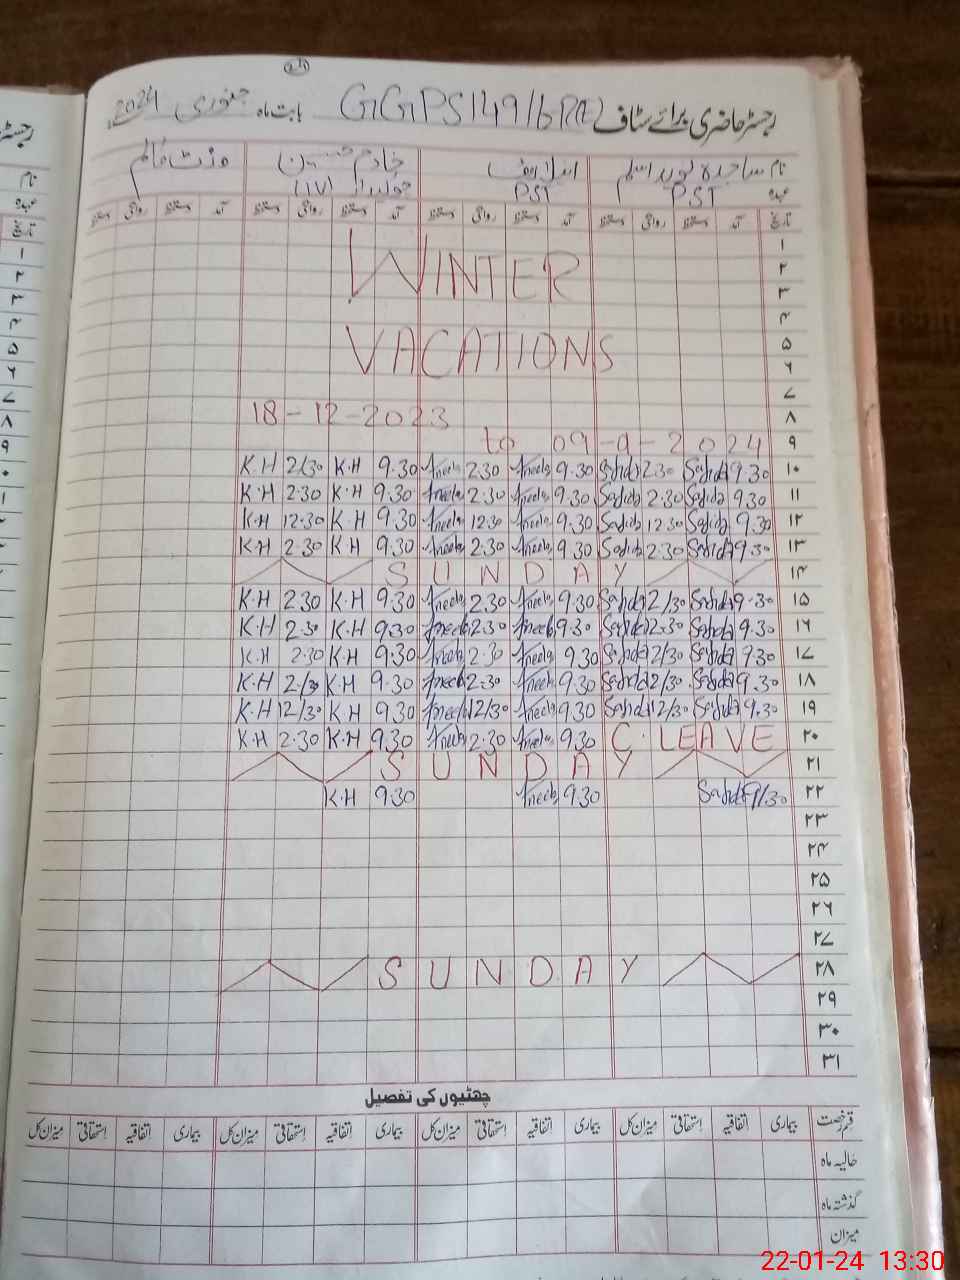 رجسٹر حاضری برائے سٹاف GGPS 149/6RA بابت ماہ جنوری 2024
نام ساجدہ نوید اسلم خادم حسین
عہدہ PST PST چوکیدار (IV)
تاریخ آمد دستخط روانگی دستخط آمد دستخط روانگی دستخط آمد دستخط روانگی دستخط آمد دستخط روانگی دستخط
۱
۲ WINTER
۳
۴
۵ VACATIONS
۶
۷
۸ 18-12-2023
۹ to 09-9-2024
۱۰ K.H 2/30 K.H 9.30 2.30 9.30 Sajida 2.30 Sajida 9.30
۱۱ K.H 2.30 K.H 9.30 2.30 9.30 Sajida 2.30 Sajida 9.30
۱۲ K.H 12.30 K.H 9.30 12.30 9.30 Sajida 12.30 Sajida 9.30
۱۳ K.H 2.30 K.H 9.30 2.30 9.30 Sajida 2.30 Sajida 9.30
۱۴ SUNDAY
۱۵ K.H 2.30 K.H 9.30 2.30 9.30 Sajida 2/30 Sajida 9.30
۱۶ K.H 2.30 K.H 9.30 2.30 9.30 Sajida 2.30 Sajida 9.30
۱۷ K.H 2.30 K.H 9.30 2.30 9.30 Sajida 2/30 Sajida 9.30
۱۸ K.H 2/30 K.H 9.30 2.30 9.30 Sajida 2/30 Sajida 9.30
۱۹ K.H 12/30 K.H 9.30 12/30 9.30 Sajida 12/30 Sajida 9.30
۲۰ K.H 2.30 K.H 9.30 2.30 9.30 C.LEAVE
۲۱ SUNDAY
۲۲ K.H 9.30 9.30 Sajida 9/30
۲۳
۲۴
۲۵
۲۶
۲۷
۲۸ SUNDAY
۲۹
۳۰
۳۱
چھٹیوں کی تفصیل
قسم رخصت بیماری اتفاقیہ استحقاقی میزان کل بیماری اتفاقیہ استحقاقی میزان کل بیماری اتفاقیہ استحقاقی میزان کل بیماری اتفاقیہ استحقاقی میزان کل
حالیہ ماہ
گذشتہ ماہ
میزان
22-01-24 13:30
رجسٹر
نام
عہدہ
تاریخ
۱
۲
۳
۴
۵
۶
۷
۸
۹